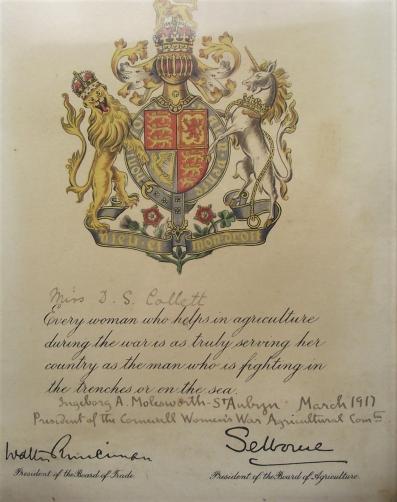 DIEU ET MON DROIT
Miss D. S. Collett
Every woman who helps in agriculture
during the war is as truly serving her
country as the man who is fighting in
the trenches or on the sea.
Ingeborg A. Molesworth-St Aubyn. March 1917
President of the Cornwall Women's War Agricultural Com<sup>tee</sup>
Walter Runciman Selborne
President of the Board of Trade. President of the Board of Agriculture.